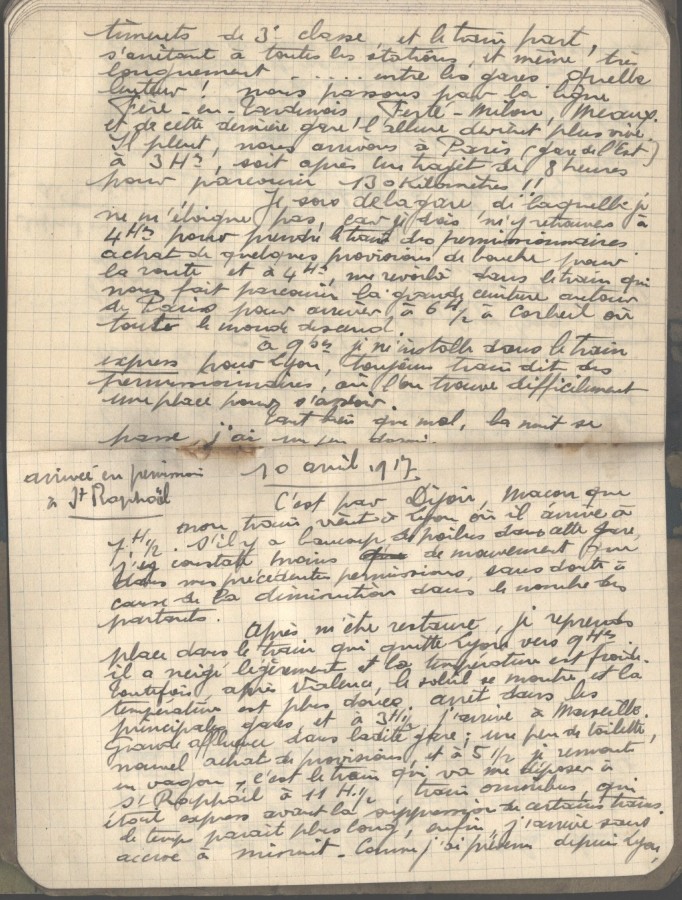 timents de 3e classe, et le train part,
s'arrêtant à toutes les stations, et même, très
longuement . . . . . entre les gares. Quelle
lenteur ! nous passons par la ligne
Fère-en-Tardenois Ferté-Milon, Meaux.
et de cette dernière gare l'allure devient plus vive.
Il pleut, nous arrivons à Paris (gare de l'Est)
à 3 Hres, soit après un trajet de 8 heures
pour parcourir 130 Kilomètres !!
Je sors de la gare de laquelle je
ne m'éloigne pas, car je dois m'y retrouver à
4 Hres pour prendre le train des permissionnaires
achat de quelques provisions de bouche pour
la route et à 4 Hres, me revoilà dans le train qui
nous fait parcourir la grande ceinture autour
de Paris pour arriver à 6 H 1/2 à Corbeil où
tout le monde descend.
à 9 Hres je m'installe dans le train
express pour Lyon, toujours train dit des
permissionnaires, où l'on trouve difficilement
une place pour s'asseoir.
Tant bien que mal, la nuit se
passe, j'ai un peu dormi.
arrivée en permission
à St Raphaël
10 avril 1917
C'est par Dijon, Macon que
mon train vient à Lyon où il arrive à
7 H 1/2. S'il y a beaucoup de poilus dans cette gare,
j'y constate moins de mouvement que
dans mes précédentes permissions, sans doute à
cause de la diminution dans le nombre des
partants.
Après m'être restauré, je reprends
place dans le train qui quitte Lyon vers 9 Hres
il a neigé légèrement et la température est froide.
Toutefois, après Valence, le soleil se montre et la
température est plus douce, arrêt dans les
principales gares et à 3 H 1/2 j'arrive à Marseille.
Grande affluence dans ladite gare ; une peu de toilette,
nouvel achat de provisions, et à 5 1/2 je remonte
en wagon, c'est le train qui va me déposer à
St Raphaël à 11 H 1/2, train omnibus, qui
était express avant la suppression de certains trains.
le temps parait plus long, enfin j'arrive sans
accroc à minuit. Comme j'ai prévenu depuis Lyon,